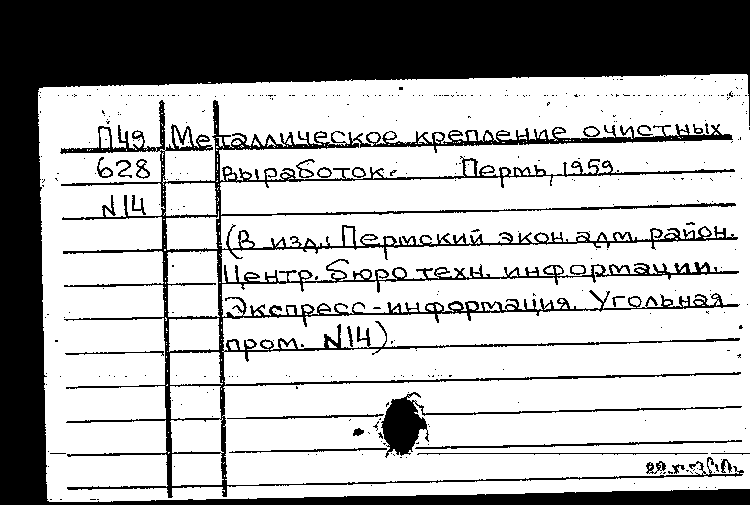 П49 Металлическое крепление очистных
628 выработок. Пермь, 1959.
N14
(В изд.: Пермский экон. адм. район.
Центр. бюро техн. информации.
Экспресс-информация. Угольная
пром. N14).